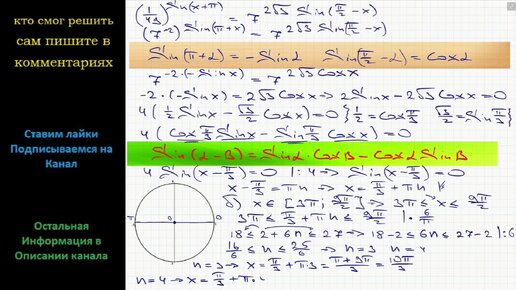 кто смог решить
сам пишите в
комментариях
Ставим лайки
Подписываемся на
Канал
Остальная
Информация в
Описании канала
(1/49)^Sin(x+π) = 7^2√3 Sin(π/2 -x)
(7^-2)^Sin(π+x) = 7^2√3 Sin(π/2 -x)
Sin(π+α) = -Sinα Sin(π/2 -α) = Cosα
7^-2·(-Sinx) = 7^2√3 Cosx
-2·(-Sinx) = 2√3 Cosx → 2Sinx - 2√3 Cosx = 0
4(1/2 Sinx - √3/2 Cosx) = 0 {1/2 = Cosπ/3 √3/2 = Sinπ/3}
4(Cosπ/3 Sinx - Sinπ/3 Cosx) = 0
Sin(α-B) = Sinα·CosB - Cosα SinB
4 Sin(x-π/3) = 0 |:4 → Sin(x-π/3) = 0
x - π/3 = πn → x = π/3 + πn
б) x ∈ [3π; 9π/2] → 3π ≤ x ≤ 9π/2
3π ≤ π/3 + πn ≤ 9π/2 |·6/π
18 ≤ 2+6n ≤ 27 → 18-2 ≤ 6n ≤ 27-2 |:6
16/6 ≤ n ≤ 25/6 → n=3 n=4
n=3 → x = π/3 + π·3 = π+9π/3 = 10π/3
n=4 → x = π/3 + π·
π 0 0